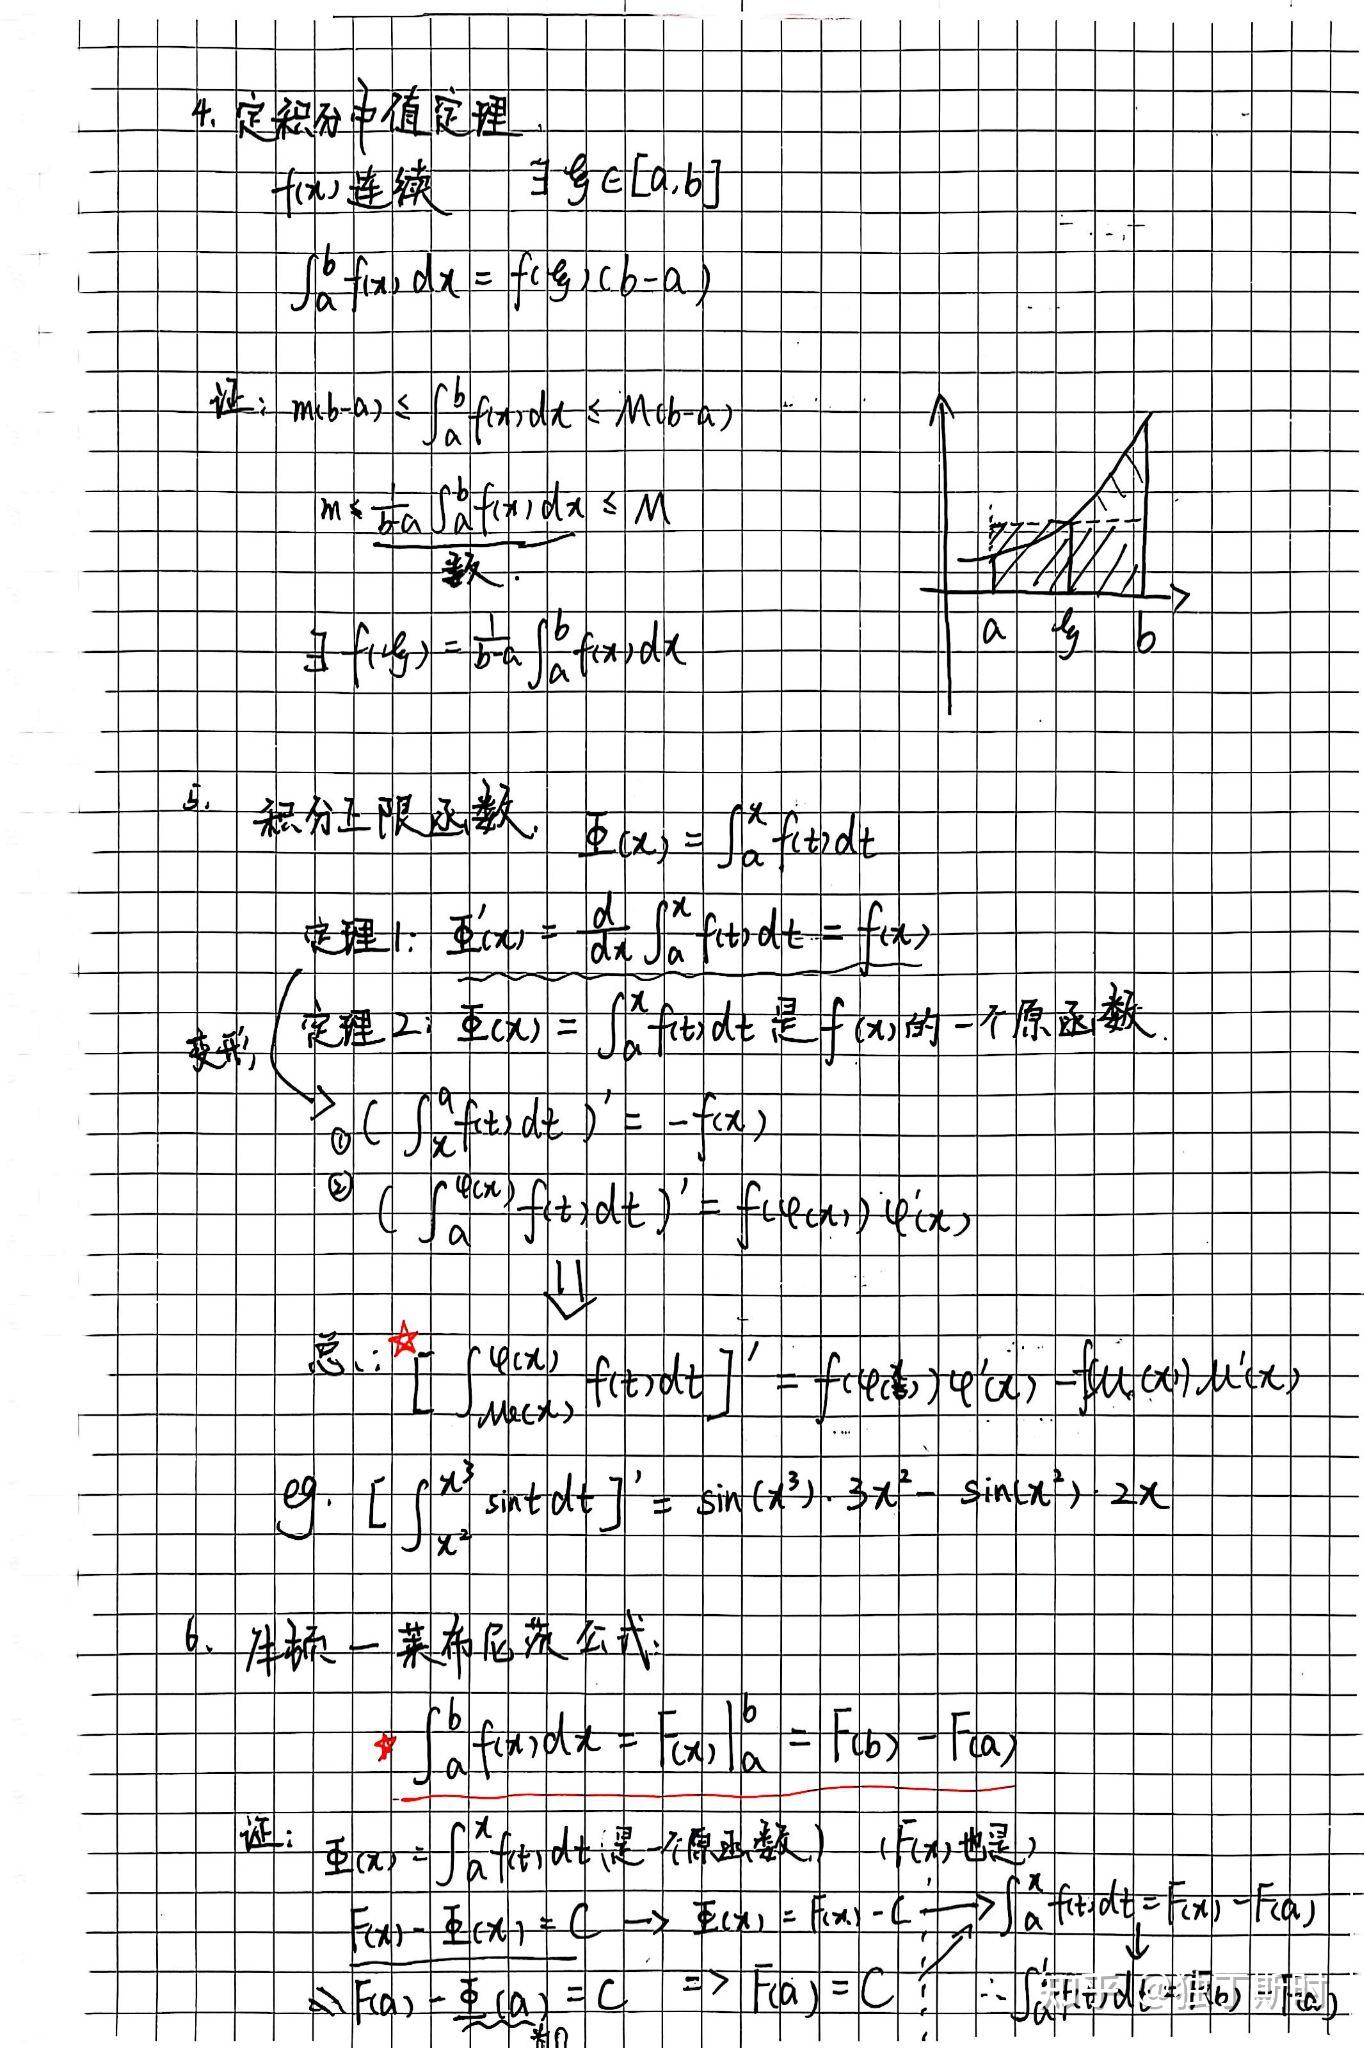 4. 定积分中值定理.
f(x) 连续 ∃ ξ∈[a,b]
∫_a^b f(x) dx = f(ξ)(b-a)
证: m(b-a) ≤ ∫_a^b f(x)dx ≤ M(b-a)
m ≤ 1/(b-a) ∫_a^b f(x)dx ≤ M
数.
∃ f(ξ) = 1/(b-a) ∫_a^b f(x)dx
a ξ b
5. 积分上限函数. Φ(x) = ∫_a^x f(t)dt
定理1: Φ'(x) = d/dx ∫_a^x f(t)dt = f(x)
定理2: Φ(x) = ∫_a^x f(t)dt 是 f(x)的一个原函数.
变形
① ( ∫_x^a f(t)dt )' = -f(x)
② ( ∫_a^φ(x) f(t)dt )' = f(φ(x))φ'(x)
⇓
总: ☆ [ ∫_μ(x)^φ(x) f(t)dt ]' = f(φ(x))φ'(x) - f(μ(x))μ'(x)
eg. [ ∫_x²^x³ sint dt ]' = sin(x³)·3x² - sin(x²)·2x
6. 牛顿一莱布尼茨公式:
★ ∫_a^b f(x)dx = F(x)|_a^b = F(b) - F(a)
证: Φ(x) = ∫_a^x f(t)dt (是一个原函数) (F(x)也是)
F(x) - Φ(x) = C → Φ(x) = F(x) - C → ∫_a^x f(t)dt = F(x) - F(a)
F(a) - Φ(a) = C => F(a) = C ∴ ∫_a f(t)dt = F(b) - F(a)
知乎 @独丁斯时